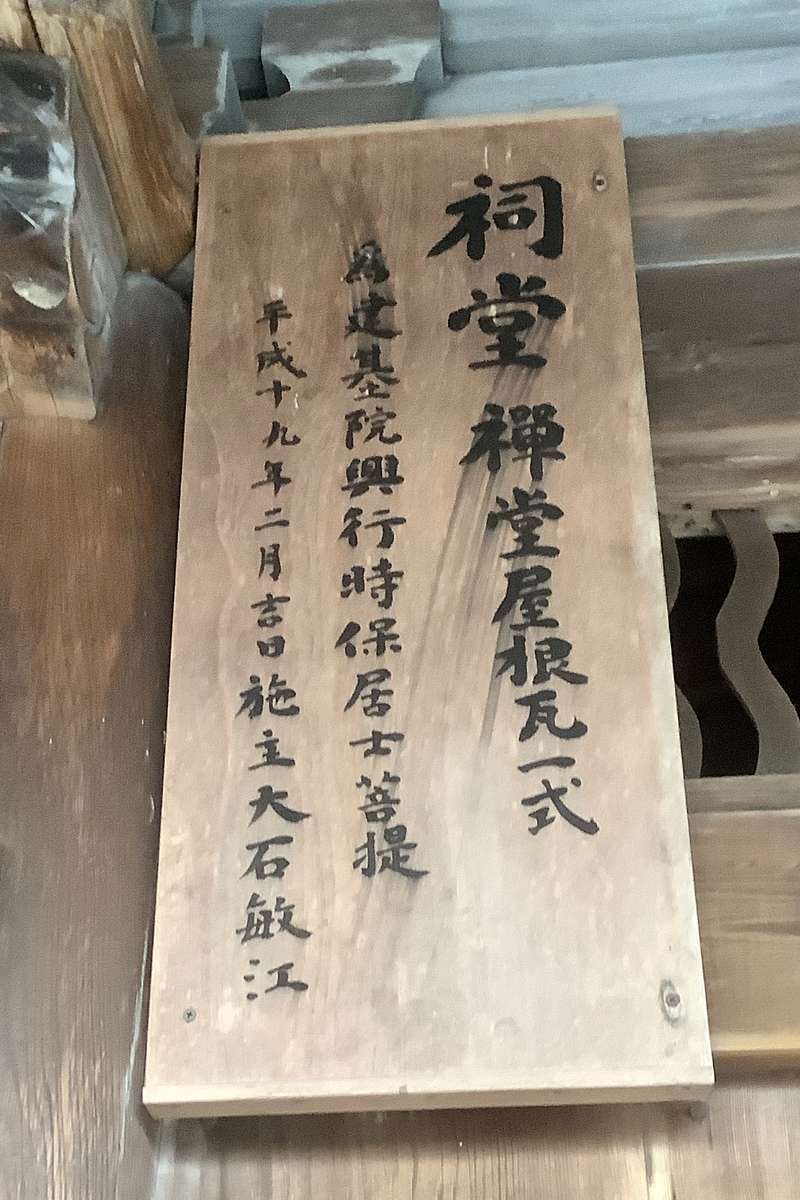 祠堂 禅堂屋根瓦一式
為建基院興行時保居士菩提
平成十九年二月吉日施主大石敏江